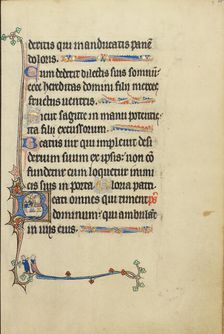 deritis qui manducatis pane
doloris.
Cum dederit dilectis suis somnu
ecce hereditas domini filii merces
fructus ventris.
Sicut sagitte in manu potentis
ita filii excussorum.
Beatus vir qui implevit desi
derium suum ex ipsis: non con
fundetur cum loquetur inimi
cis suis in porta. Gloria patri.
Beati omnes qui timent ps
dominum: qui ambulant
in viis eius.